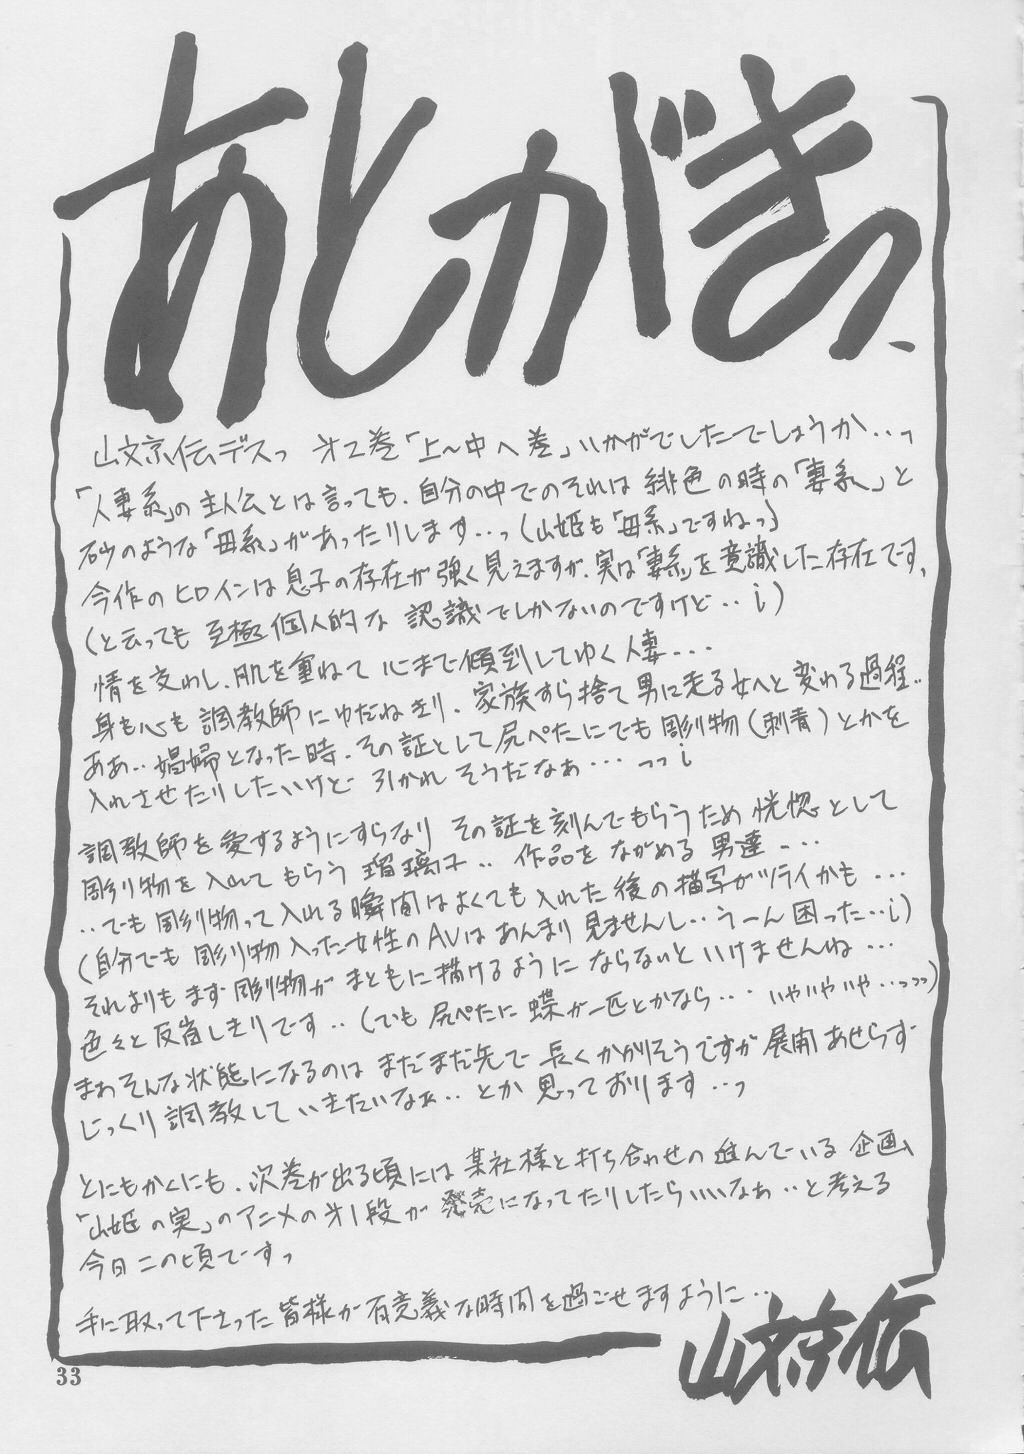 あとがきっ
山文京伝デスっ 才2巻「上〜中へ巻」いかがでしたでしょうか‥っ
「人妻系」の主人公とは言っても、自分の中でのそれは 緋色の時の「妻系」と
砂のような「母系」があったりします…っ(山姫も「母系」ですねっ)
今作のヒロインは息子の存在が強く見えますが、実は「妻系」を意識した存在です、
(と云っても 至極個人的な 認識でしかないのですけど‥i)
情を交わし、肌を重ねて 心まで傾倒してゆく人妻…
身も心も 調教師にゆだねきり、家族すら捨て 男に走る女へと変わる過程‥
ああ‥娼婦となった時、その証として尻ぺたにでも彫り物(刺青)とかを
入れさせたりしたいけど 引かれそうだなぁ… っっi
調教師を愛するようにすらなり その証を刻んでもらうため 恍惚として
彫り物を入れてもらう 瑠璃子‥ 作品を ながめる 男達…
‥でも彫り物って入れる瞬間はよくても入れた後の描写がツライかも…
(自分でも 彫り物入った女性のAVはあんまり見ませんし‥うーん困った‥i)
それよりもまず彫り物が まともに描けるように ならないと いけませんね…
色々と反省しきりです‥(でも 尻ぺたに 蝶が一匹とかなら… いやいやいや‥っっっ)
まぁそんな状態になるのは まだまだ先で 長くかかりそうですが 展開あせらず
じっくり調教していきたいなぁ‥とか 思っております‥っ
とにもかくにも、次巻が出る頃には 某社様と打ち合わせの進んでいる 企画、
「山姫の実」のアニメの才1段が 発売になってたりしたらいいなぁ‥と考える
今日この頃ですっ
手に取って下さった 皆様が 有意義な時間を過ごせますように‥
山文京伝
33